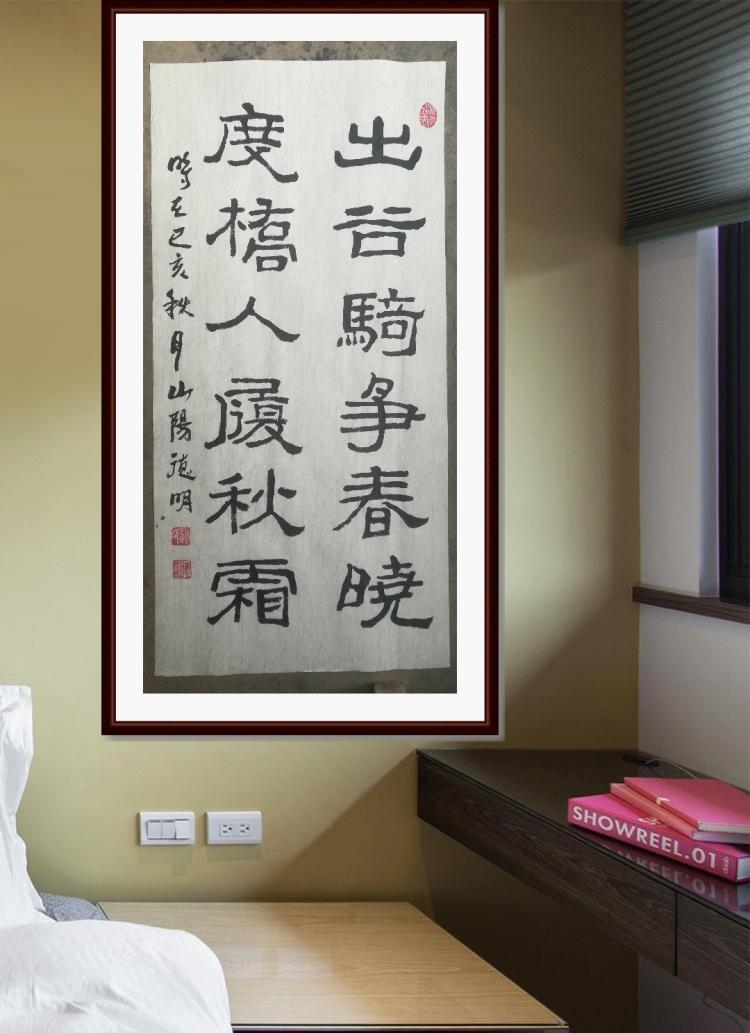 出谷騎爭春曉
度橋人履秋霜
時在己亥秋月山陽德明
SHOWREEL.01
daab